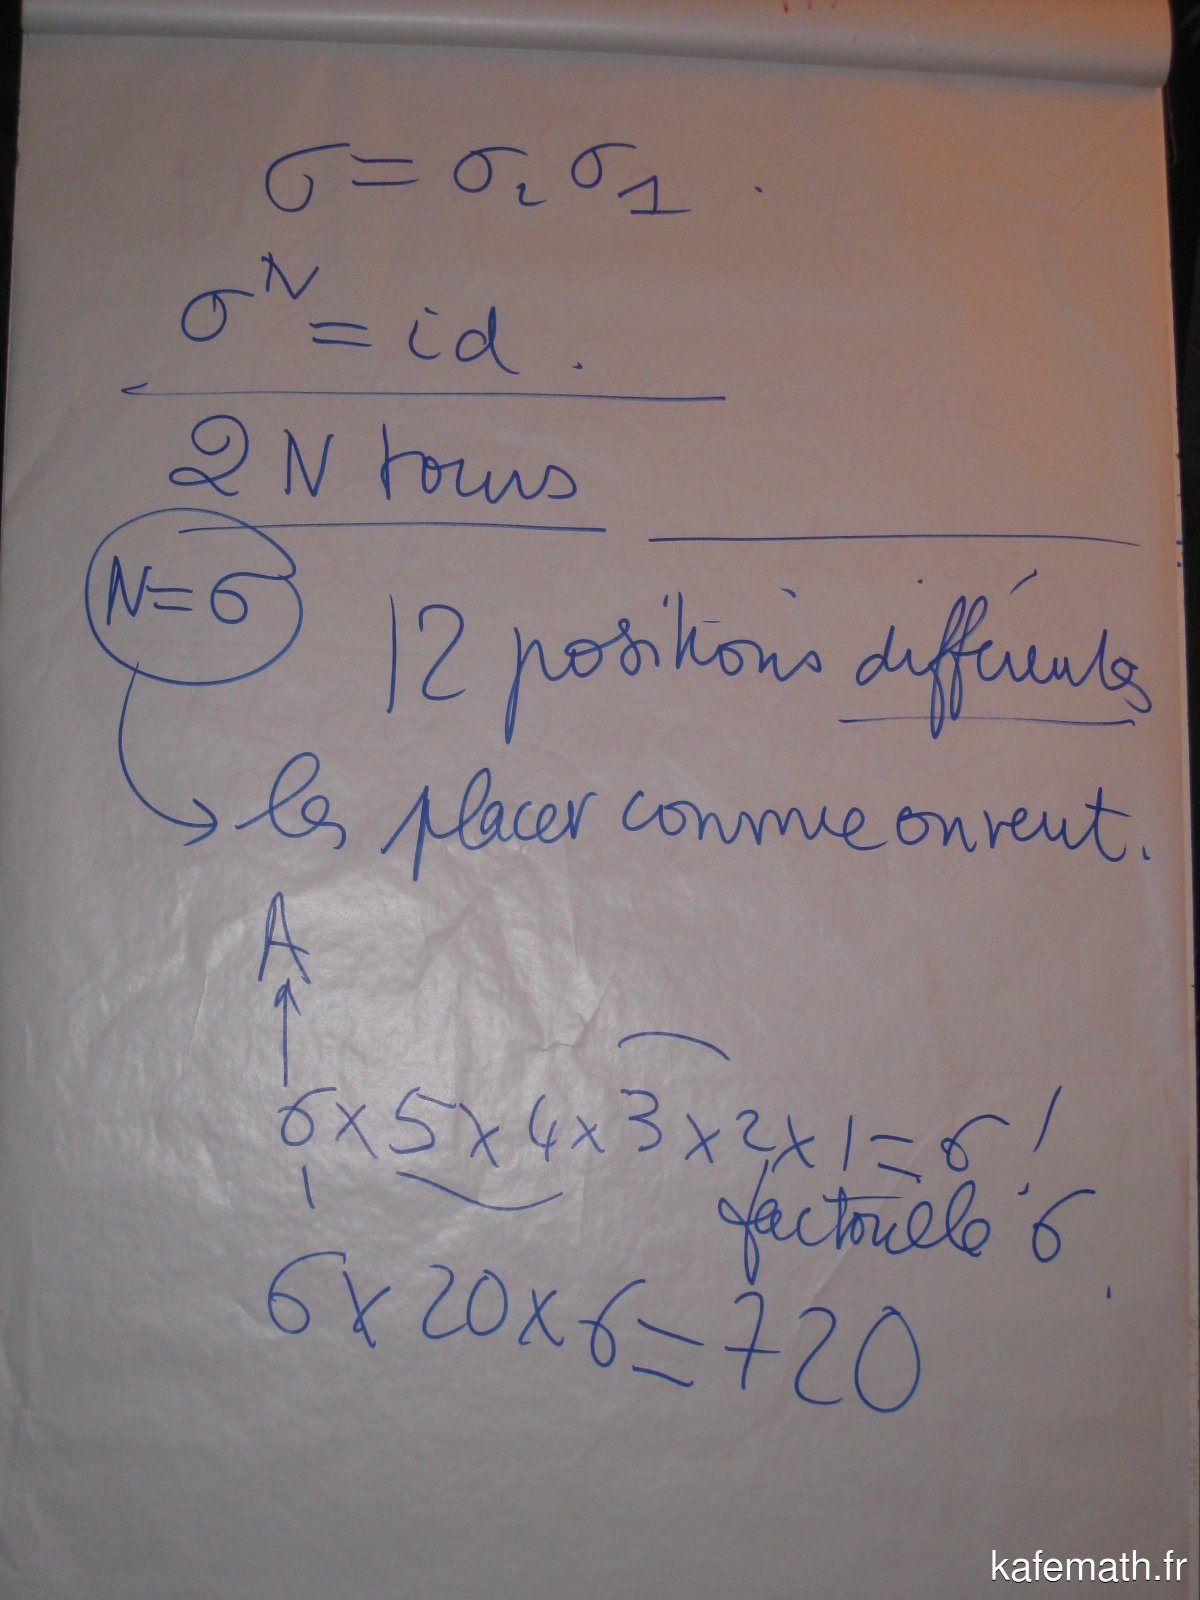 σ = σ₂ σ₁ .
σᴺ = id .
2 N tours
N=6 12 positions différentes
les placer comme on veut.
A
6 x 5 x 4 x 3 x 2 x 1 = 6 !
factorielle 6
6 x 20 x 6 = 720
kafemath.fr